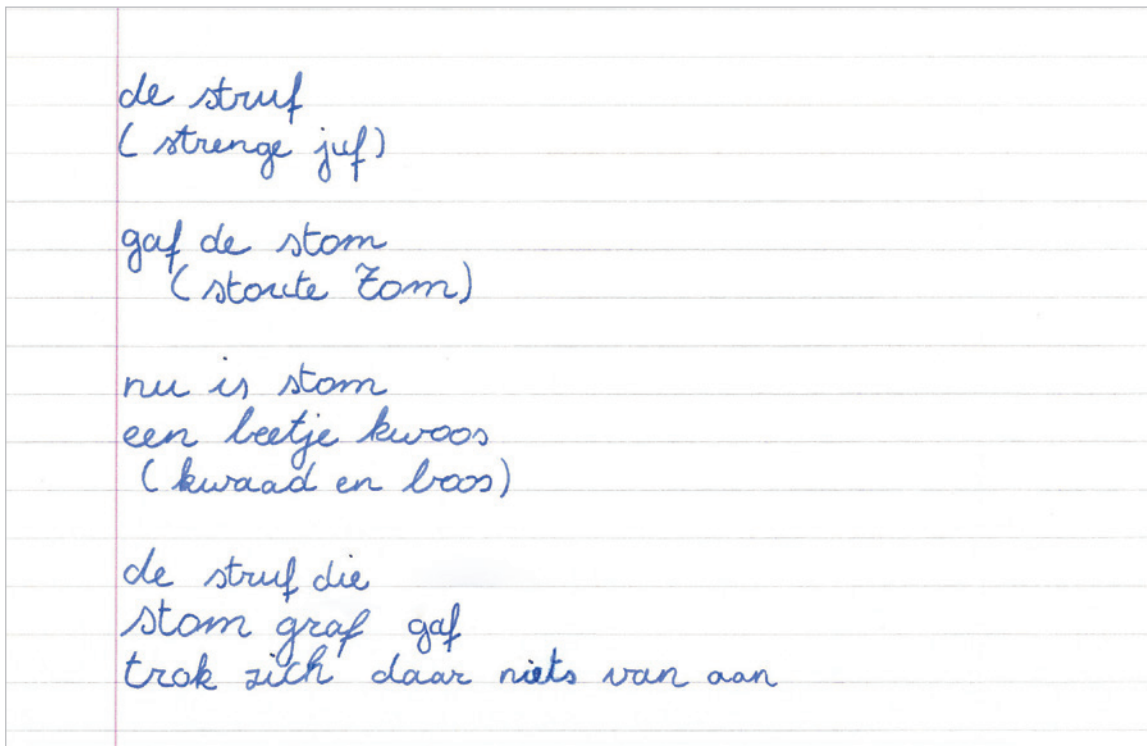 de struf
(strenge juf)
gaf de stom
(stoute Tom)
nu is stom
een beetje kwoos
(kwaad en boos)
de struf die
stom graf gaf
trok zich daar niets van aan